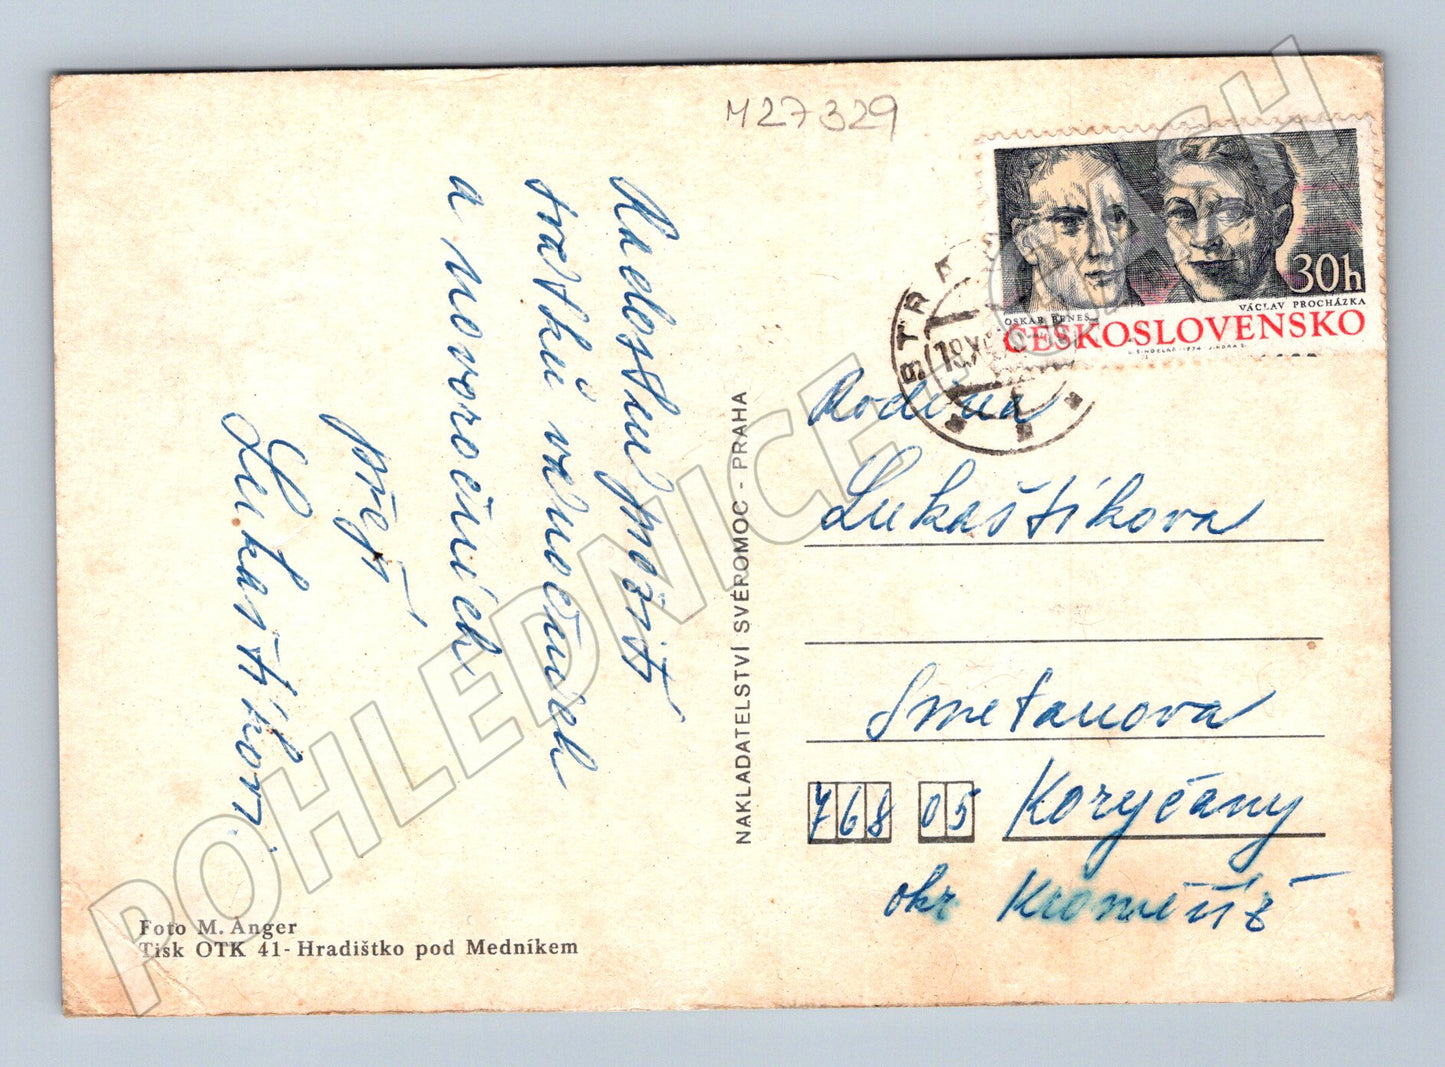 M27329
Radostné prožití
svátků vánočních
a novoročních
přejí
Lukaštíkovi.
NAKLADATELSTVÍ SVÉROMOC - PRAHA
OSKAR BENEŠ
VÁCLAV PROCHÁZKA
30h
ČESKOSLOVENSKO
Rodina
Lukaštíkova
Smetanova
768 05 Koryčany
okr Kroměříž
Foto M. Anger
Tisk OTK 41- Hradištko pod Medníkem
POHLEDNICE